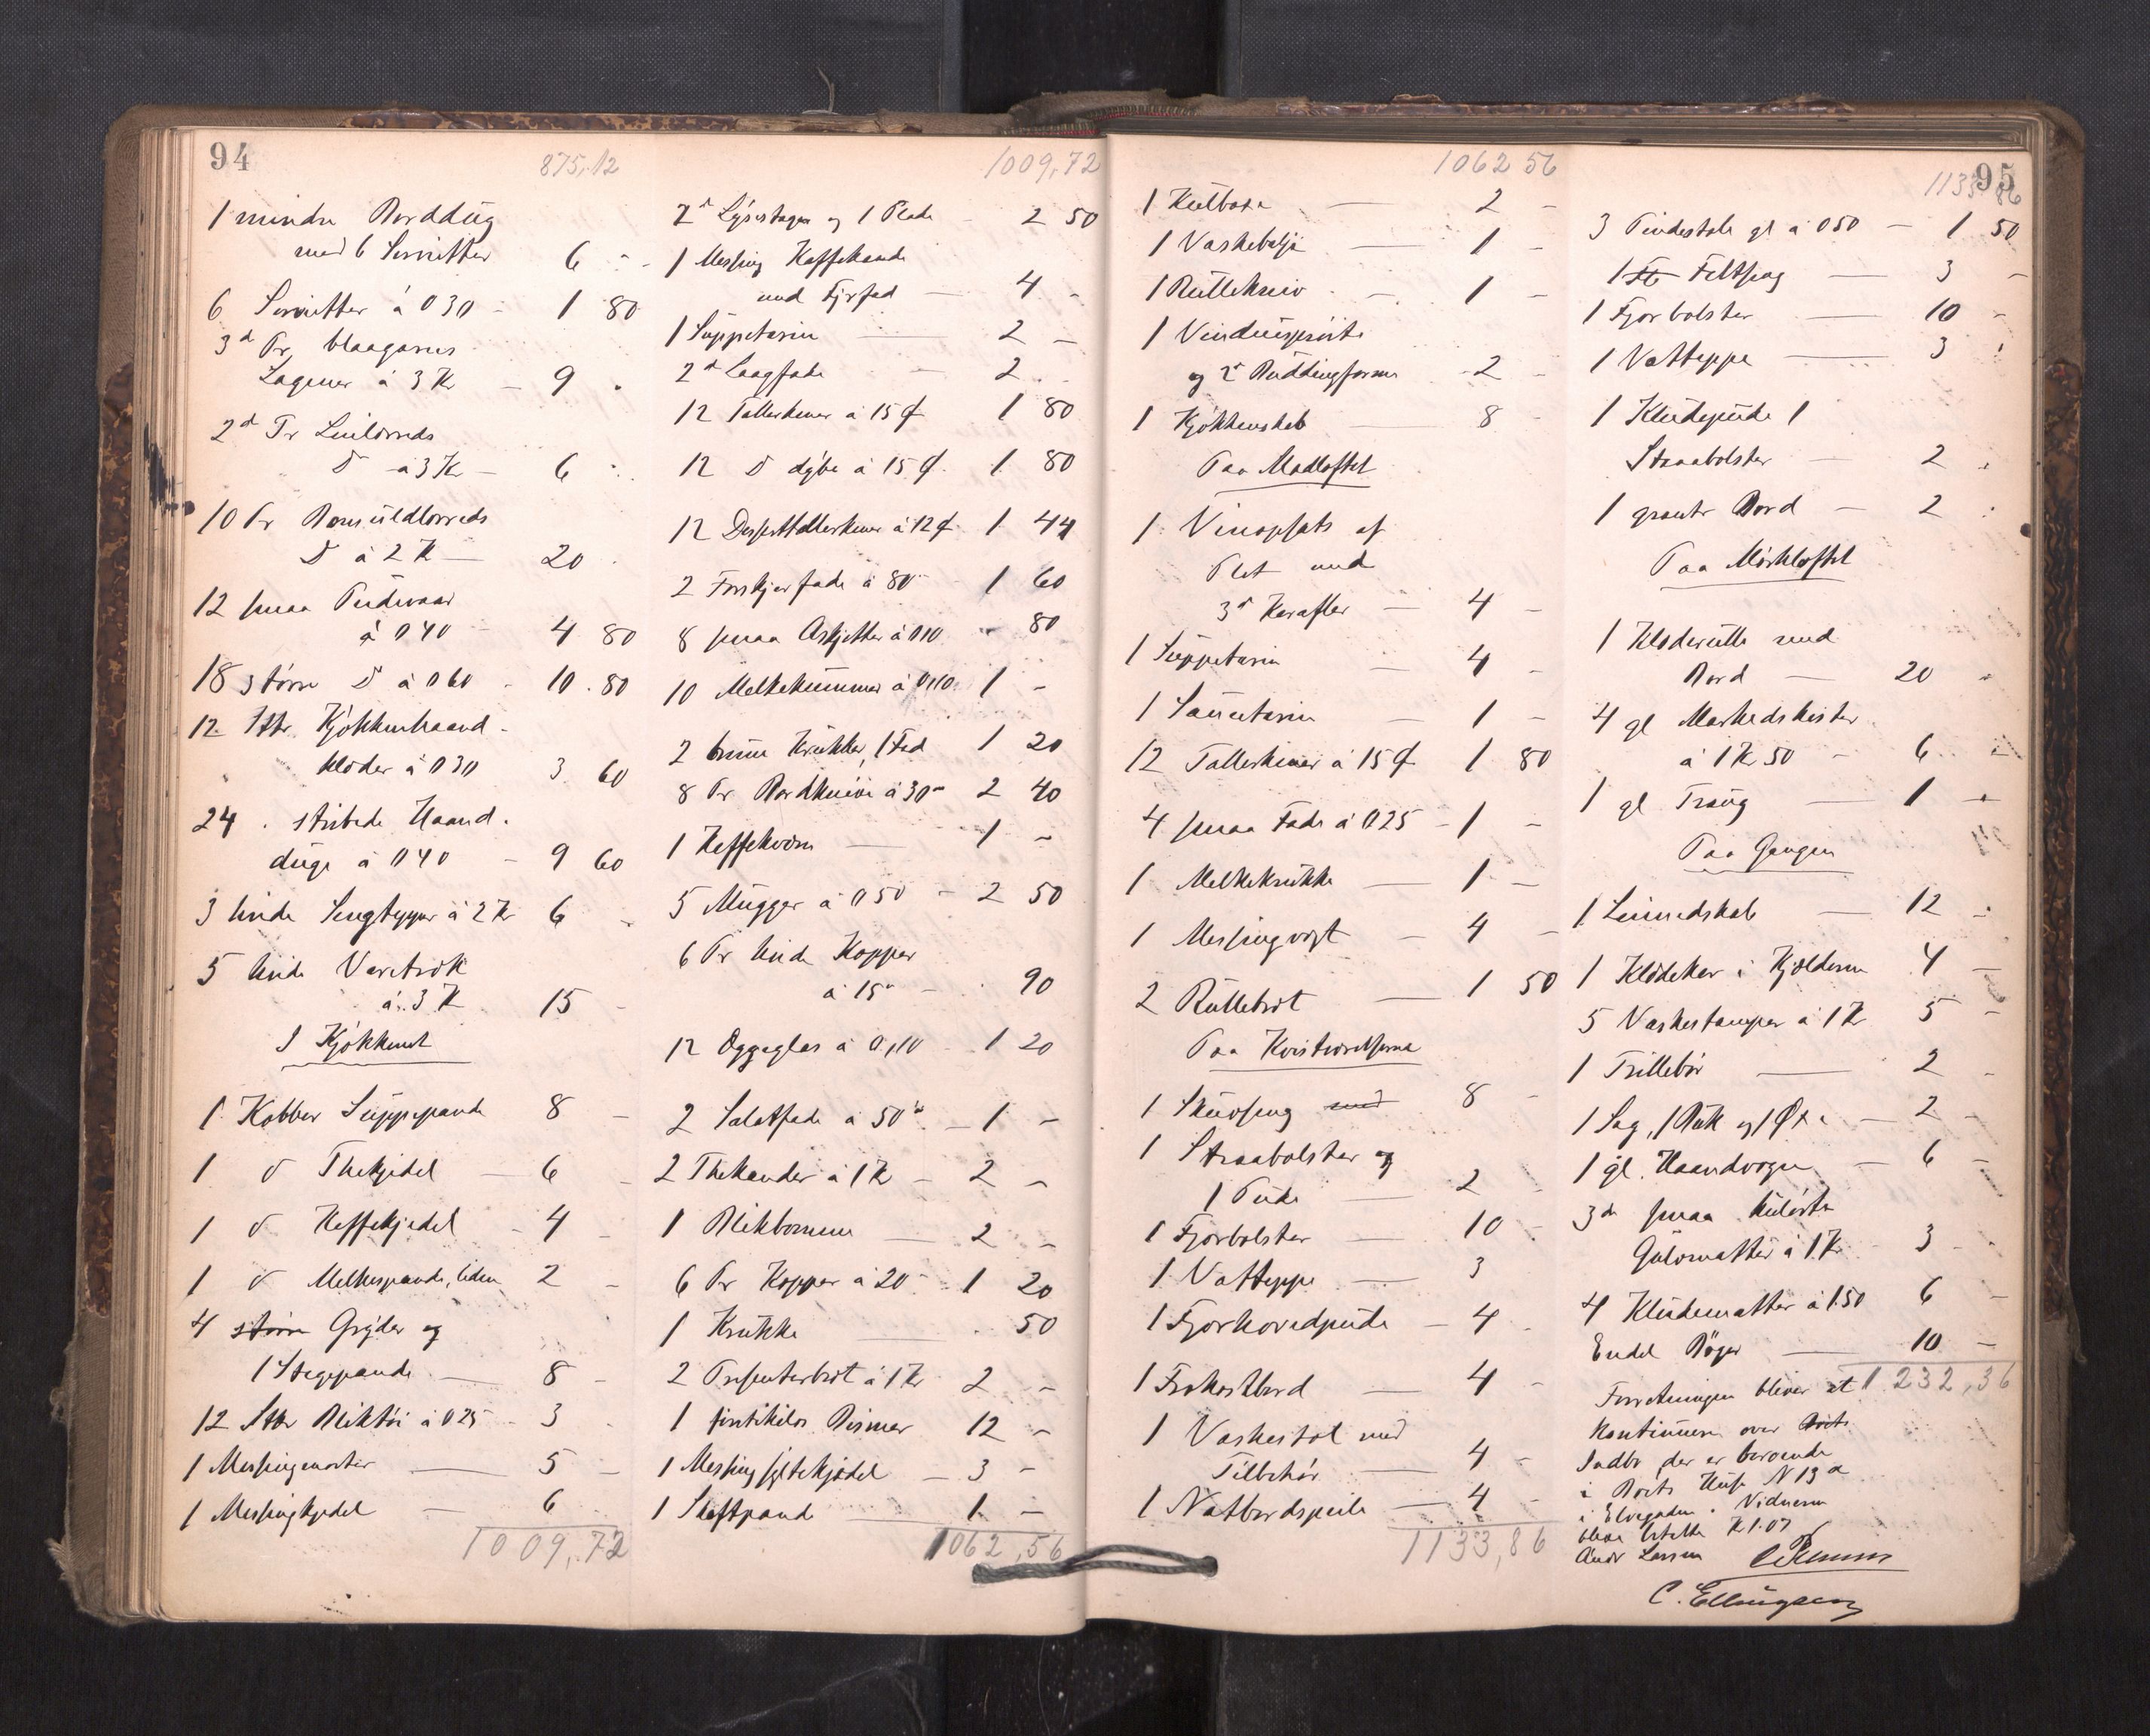 94
875,12
1 mindre Borddug
med 6 Servietter 6 -
6 Servietter à 0 30 - 1 80
3d Pr blaagarns
Lagener à 3 Kr - 9 -
2d Pr Linlerreds
D à 3 Kr - 6 -
10 Pr Bomuldlerreds
D à 2 K - 20 -
12 smaa Pudevaar
à 0 40 - 4 80
18 større D à 0 60 - 10 80
12 Stkr Kjøkkenhaand-
klæder à 0 30 3 60
24 stribede Haand-
duge à 0 40 - 9 60
3 hvide Sengtepper à 2 Kr 6 -
5 hvide
à 3 K 15 -
I Kjøkkenet
1 Kobber Suppepande 8 -
1 d Thekjedel - 6 -
1 d Kaffekjedel - 4 -
1 d Melkespande, liden 2 -
4 større Gryder og
1 Stegepande - 8 -
12 Stkr Bliktøi à 0 25 - 3 -
1 Messingmorter - 5 -
1 Messingkjedel - 6 -
1009,72
1009,72
2d Lysestager og 1 Plade - 2 50
1 Messing Kaffekande
med Fyrfad - 4 -
1 Suppeterin - 2 -
2d Laagfade - 2 -
12 Tallerkener à 15 ø 1 80
12 D dybe à 15 ø 1 80
12 Desserttallerkener à 12 ø 1 44
2 Forskjerfade à 80 - 1 60
8 smaa Asjetter à 0 10 - 80
10 Melkekummer à 0,10 1 -
2 brune Krukker, 1 Fad 1 20
8 Pr Bordknive à 30 - 2 40
1 Kaffekværn - 1 -
5 Mugger à 0 50 - 2 50
6 Pr hvide Kopper
à 15 - 90
12 Eggeglas à 0,10 - 1 20
2 Salatfade à 50 - 1 -
2 Thekander à 1 K - 2 -
1 Blikbomme - 2 -
6 Pr Kopper à 20 - 1 20
1 Krukke - 50
2 Presenterbret à 1 Kr 2 -
1 Bismer 12 -
1 Messing syltekjedel - 3 -
1 Skaftpande - 1 -
1062,56
95
1062 56
1 Kulboxe - 2 -
1 Vaskebalje - 1 -
1 Rullekniv - 1 -
1 Vinduessprøite
og 2d Puddingformer - 2 -
1 Kjøkkenskab - 8 -
Paa Madloftet
1 Vinopsats af
Plet med
3d Karafler - 4 -
1 Suppeterin - 4 -
1 Sauceterin - 1 -
12 Tallerkener à 15 ø 1 80
4 smaa Fade à 0 25 - 1 -
1 Melkekrukke - 1 -
1 Messingvegt - 4 -
2 Rullebret - 1 50
Paa Kvistværelserne
1 Skuvseng med 8 -
1 Straabolster og
1 Pude - 2 -
1 Fjørbolster - 10 -
1 Vatteppe - 3
1 Fjørhovedpude - 4 -
1 Frokostbord - 4 -
1 Vaskestol med
Tilbehør - 4 -
1 Natbordspeile - 4 -
1133,86
1133,86
3 Pindestole gl à 0 50 - 1 50
1 St Feltseng - 3 -
1 Fjørbolster - 10 -
1 Vatteppe - 3 -
1 Kludepude 1
Straabolster - 2 -
1 Bord - 2 -
Paa Mørkloftet
1 Klæderulle med
Bord - 20 -
4 gl Markedskister
à 1 Kr 50 - 6 -
1 gl Traug - 1 -
Paa Gangen
1 Linnedskab - 12 -
1 Klædekar i Kjælderen 4 -
5 Vaskestamper à 1 Kr 5 -
1 Trillebør - 2 -
1 Sag, 1 Buk og 1 Øxe - 2 -
1 gl. Haandvogn - 6 -
3d smaa kulørte
Gulvmatter à 1 Kr - 3 -
4 Kludematter à 1.50 6 -
Endel Bøger - 10 -
1232,36
Forretningen bliver at
kontinuere over Boets
Indbo der er beroende
i Boets Hus N 13 a
i Elvegaden. Vidnerne
bleve betalte K 1.07
Andr Larsen
C. Ellingsen